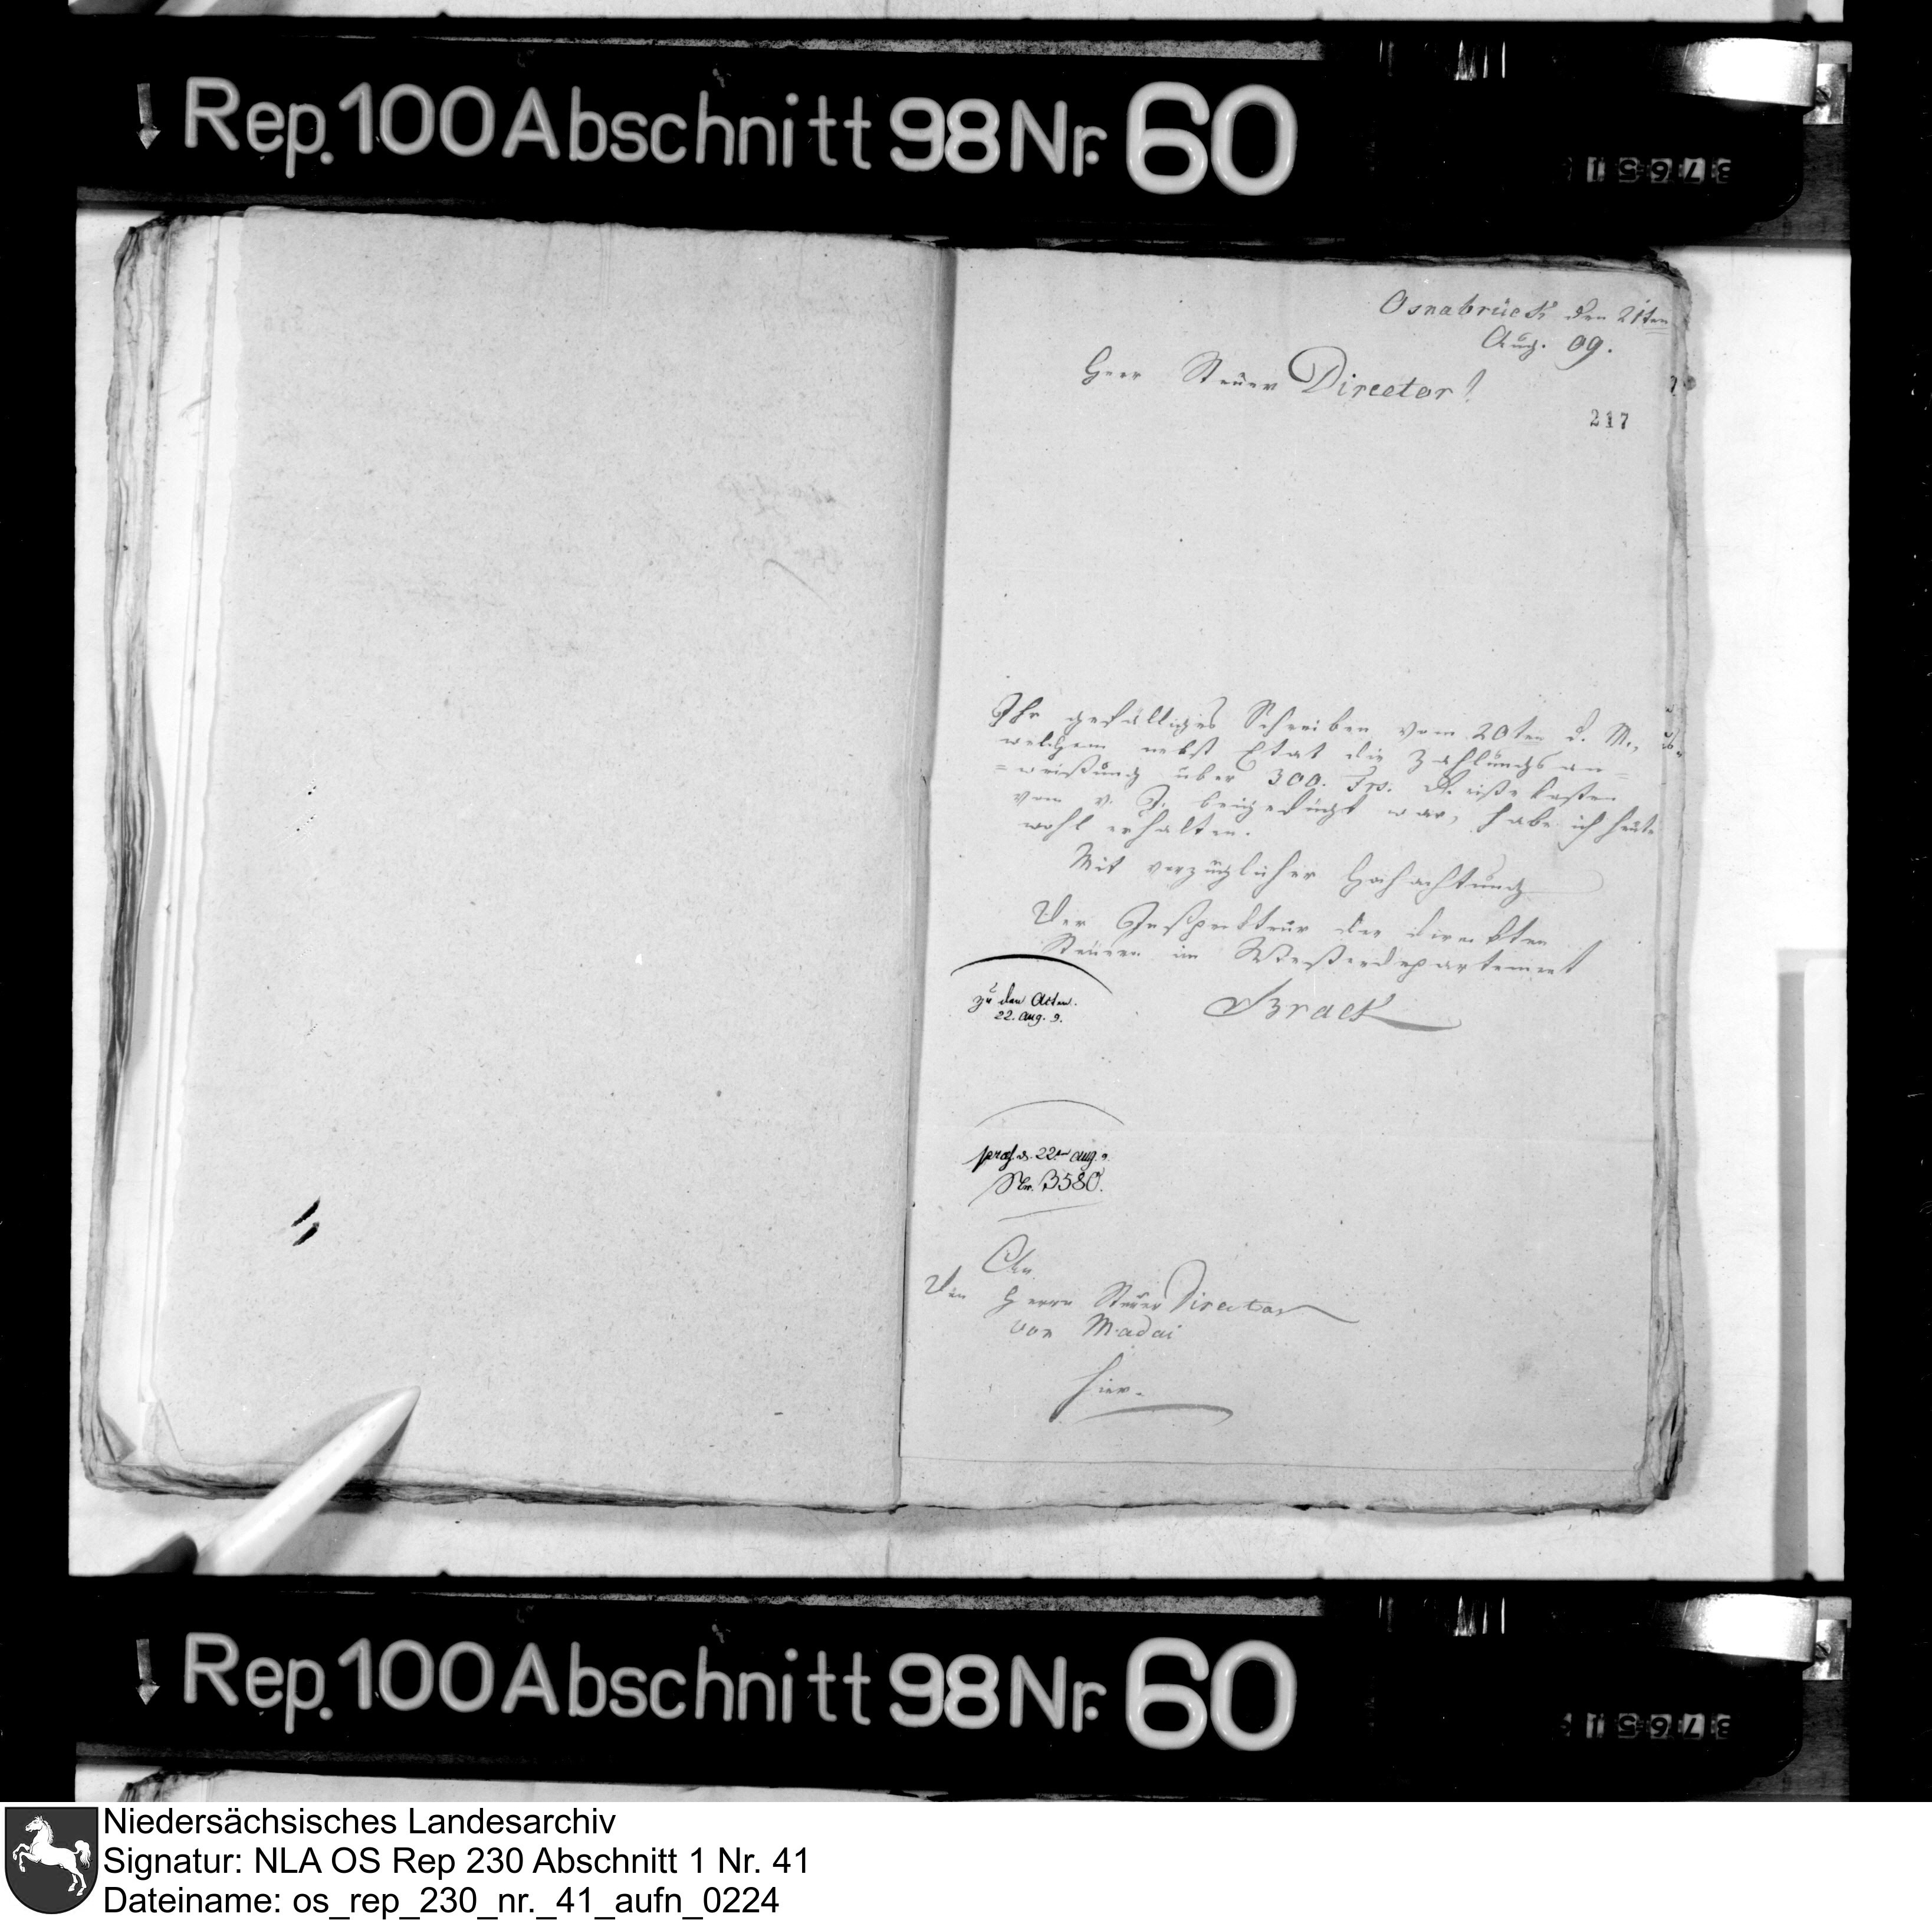 Rep. 100 Abschnitt 98 Nr. 60
37651
Osnabrück den 21ten
Aug. 09.
Herr Steuer Director!
217
Ihr gefälliges Schreiben vom 20ten d. M.,
welchem nebst Etat die Zahlungsan=
=weißung über 300. Frs. Reißekosten
vom v. J. beigefügt war, habe ich heute
wohl erhalten.
Mit vorzüglicher Hochachtung
Der Inspekteur der direkten
Steuern im Weserdepartement
Brack
zu den Acten.
22. Aug. 9.
praes. d. 22ten Aug. 9.
Nr. 3580.
An
Den Herrn Steuer Director
von Madai
hier.
Rep. 100 Abschnitt 98 Nr. 60
37651
Niedersächsisches Landesarchiv
Signatur: NLA OS Rep 230 Abschnitt 1 Nr. 41
Dateiname: os_rep_230_nr._41_aufn_0224